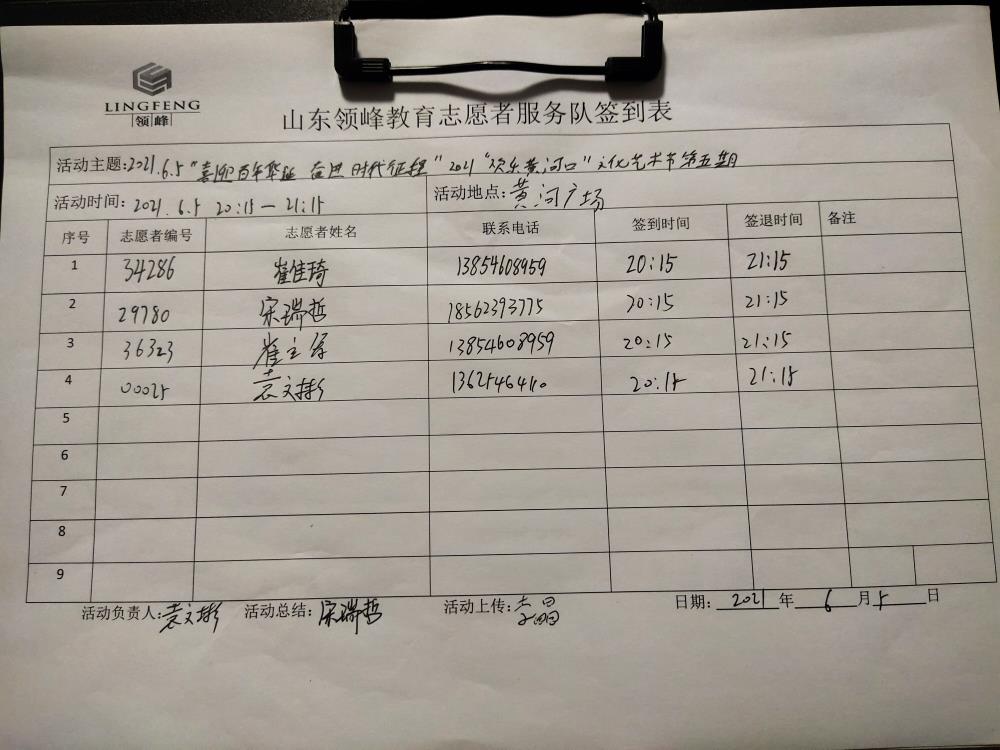 LINGFENG
领峰
山东领峰教育志愿者服务队签到表
活动主题:2021.6.5"喜迎百年华诞 奋进时代征程"2021"欢乐黄河口"文化艺术节第五期
活动时间: 2021.6.5 20:15—21:15 活动地点:黄河广场
序号 志愿者编号 志愿者姓名 联系电话 签到时间 签退时间 备注
1 34286 崔佳琦 13854608959 20:15 21:15
2 29780 宋瑞哲 18562393775 20:15 21:15
3 36323 崔 13854608959 20:15 21:15
4 00025 袁文彬 20:15 21:15
5
6
7
8
9
活动负责人:袁文彬 活动总结:宋瑞哲 活动上传: 日期: 2021 年 6 月 5 日